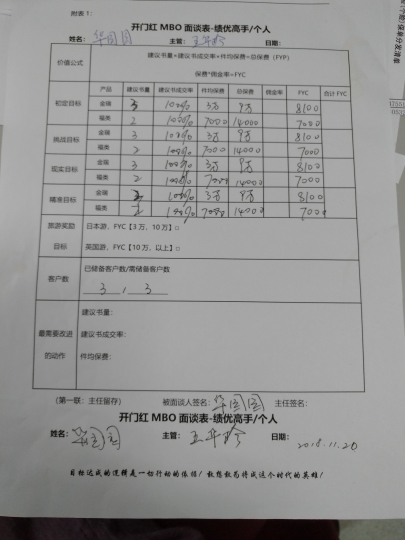 附表 1：
开门红 MBO 面谈表-绩优高手/个人
姓名： 华国圆 主管： 日期：
价值公式 建议书量×建议书成交率×件均保费=总保费（FYP）
保费*佣金率=FYC
产品 建议书量 建议书成交率 件均保费 总保费 佣金率 FYC 合计 FYC
初定目标 金瑞 3 100% 3万 9万 8100
福类 2 100% 7000 14000 7000
挑战目标 金瑞 3 100% 3万 9万 8100
福类 2 100% 7000 14000 7000
现实目标 金瑞 3 100% 3万 9万 8100
福类 2 100% 7000 14000 7000
精准目标 金瑞 100% 3万 9万 8100
福类 100% 7000 14000 7000
旅游奖励 日本游，FYC【3 万，10 万】□
目标 英国游，FYC【10 万，以上】□
客户数 已储备客户数/需储备客户数
3 , 3
最需要改进的动作 建议书量：
建议书成交率：
件均保费：
（第一联：主任留存） 被面谈人签名： 华国圆 主任签名：
开门红 MBO 面谈表-绩优高手/个人
姓名： 华国圆 主管： 日期： 2018.11.20
目标达成的逻辑是一切行动的依据！敢想敢为将成这个时代的英雄！